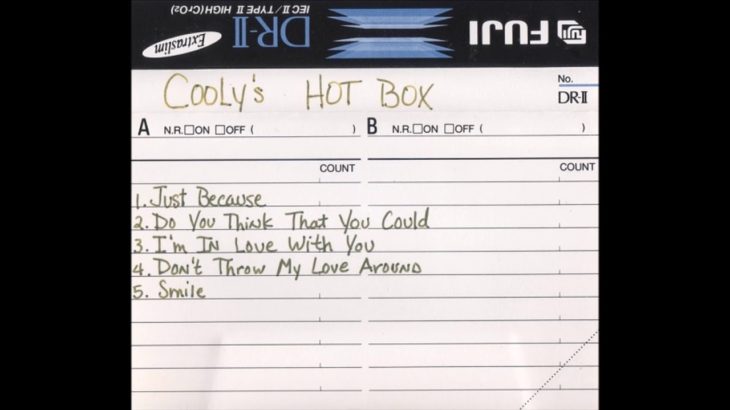 IEC II/TYPE II HIGH(CrO2)
Extraslim DR-II FUJI
Cooly's HOT BOX
No.
DR-II
A N.R.□ON □OFF ( ) B N.R.□ON □OFF ( )
COUNT COUNT
1. Just Because
2. Do You Think That You Could
3. I'm In Love With You
4. Don't Throw My Love Around
5. Smile